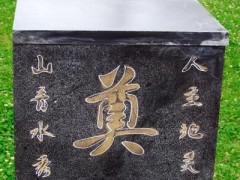 人杰地灵
奠
山青水秀